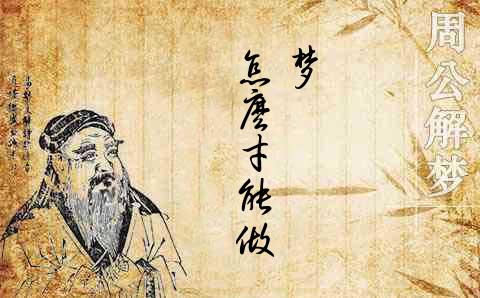 周公解梦
梦
怎麽才能做